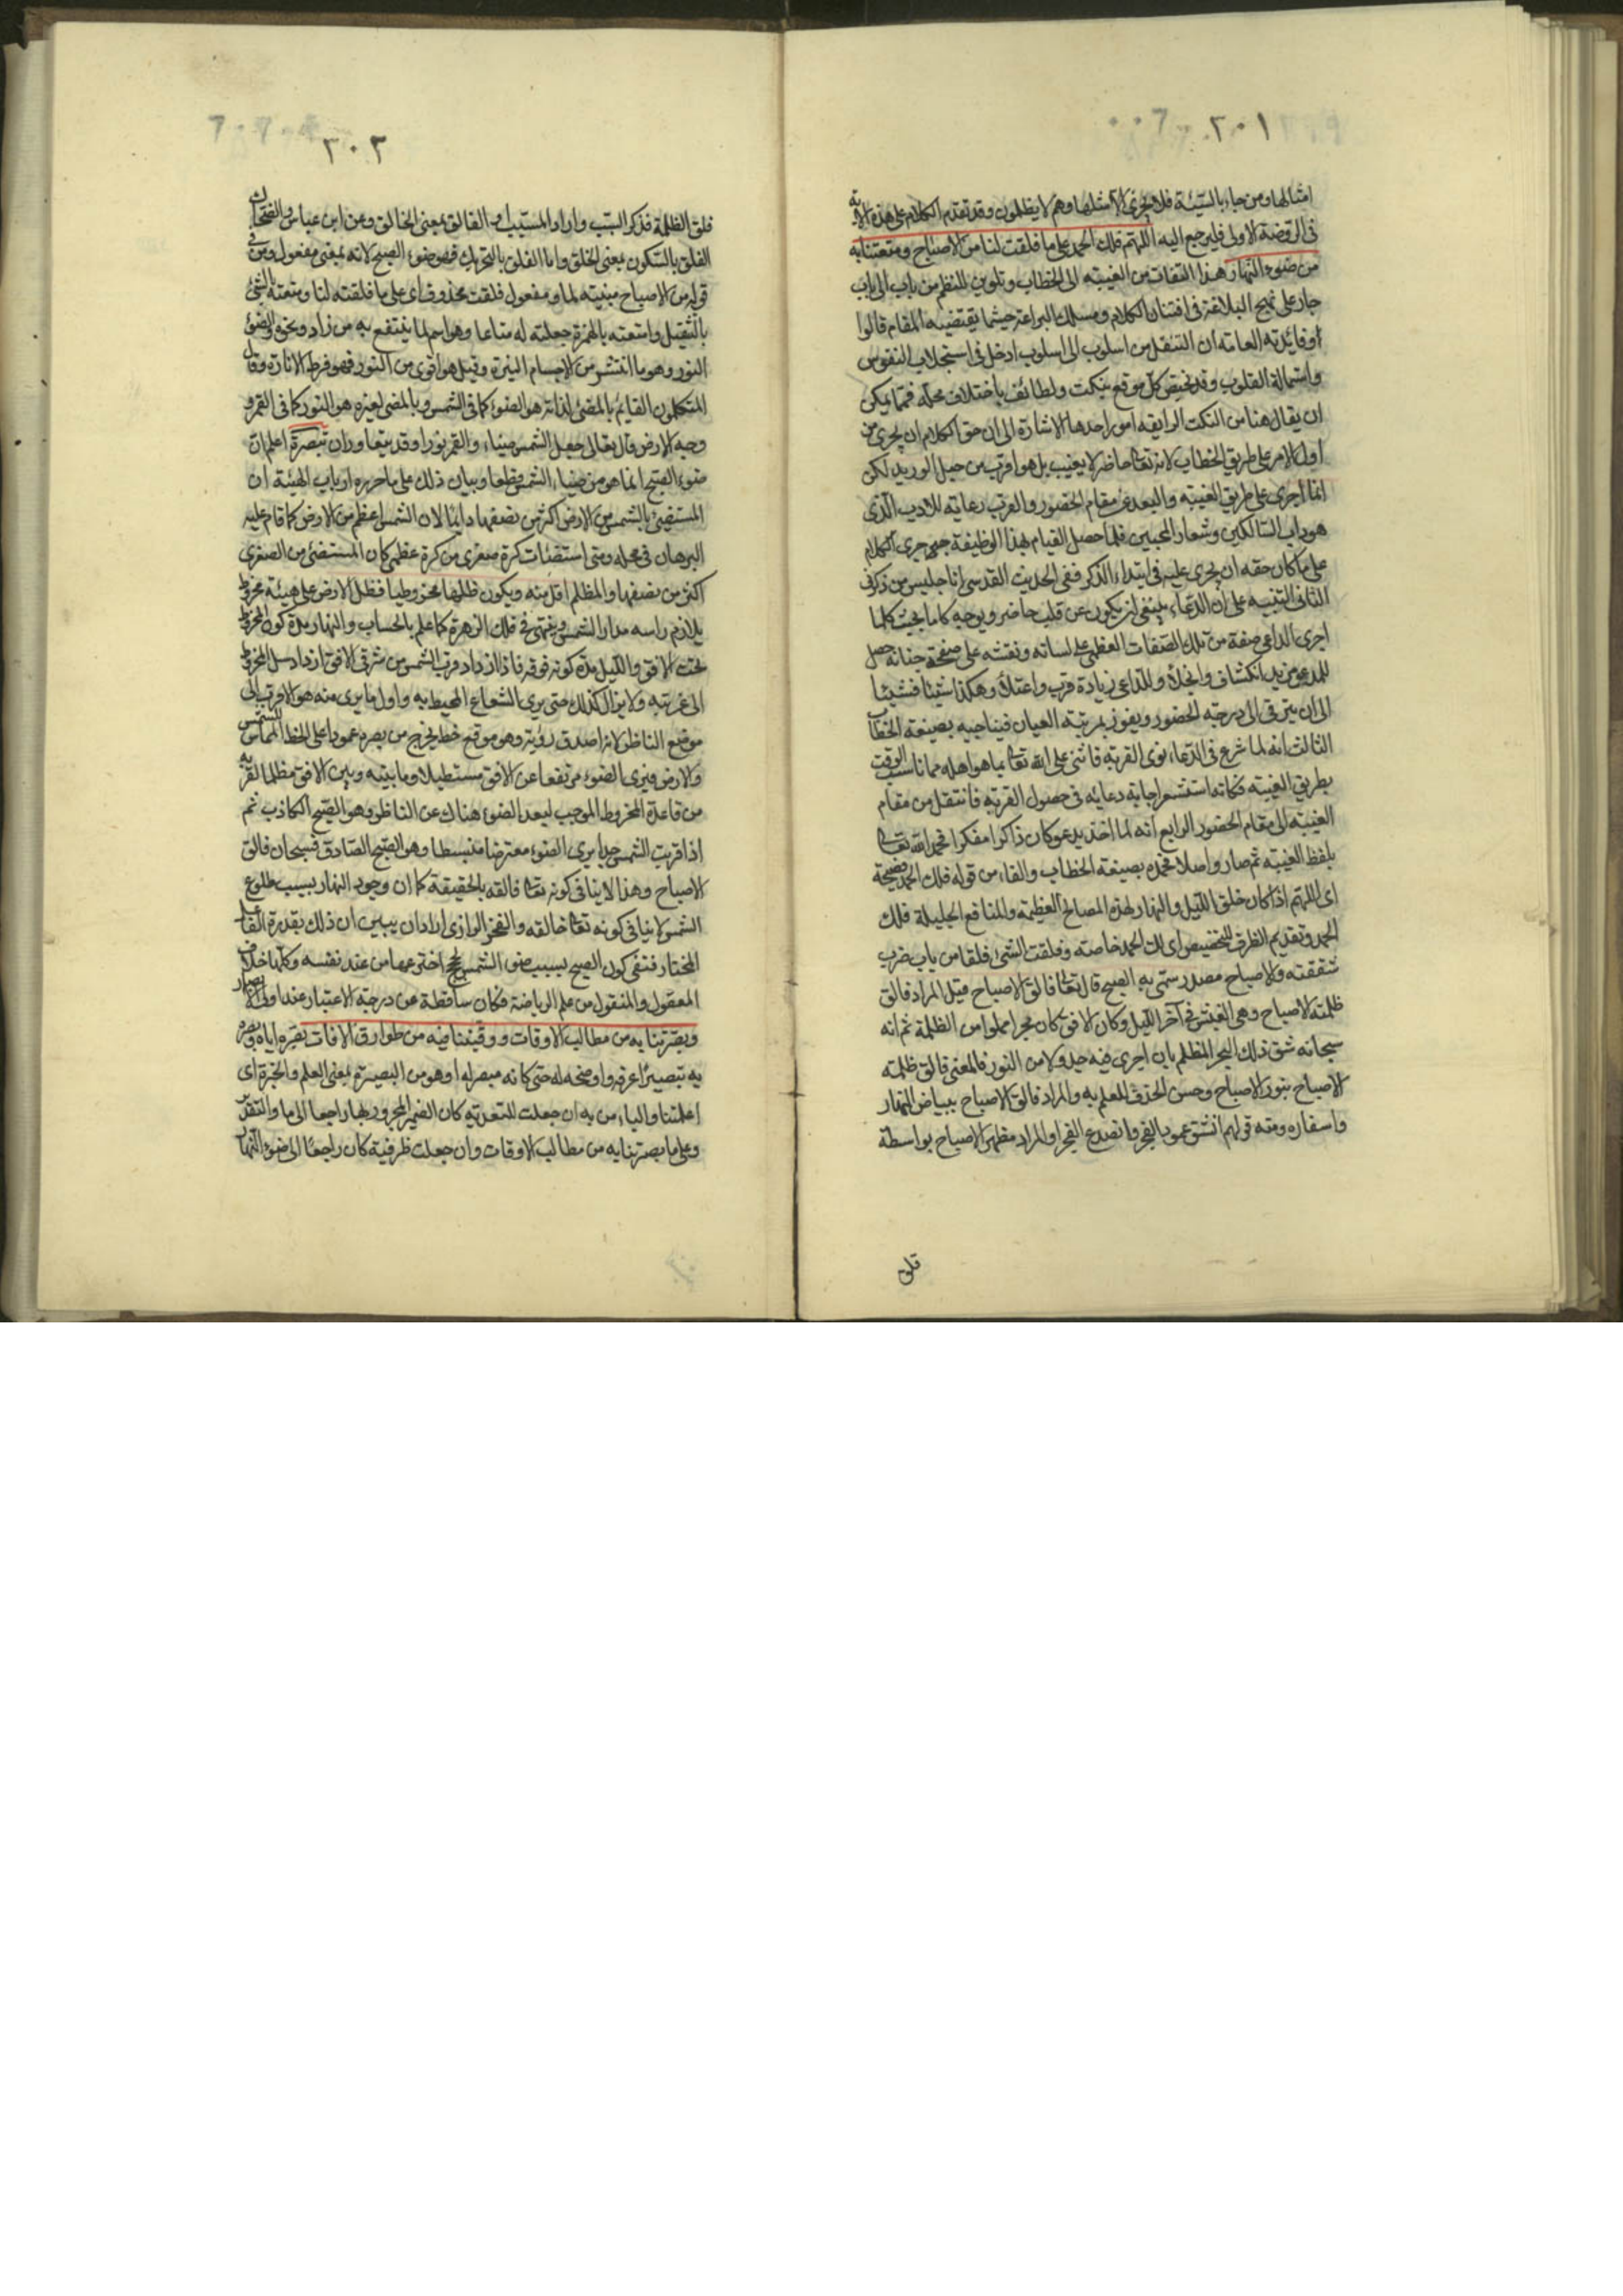 ٣٠١
امثالها ومن جاء بالسيئة فلا يجزى الا مثلها وهم لا يظلمون وقد تقدم الكلام على هذه الاية
فى الروضة الاولى فليرجع اليه اللهم فلك الحمد على ما فلقت لنا من الاصباح ومتعتنا به
من ضوء النهار هذا التفات من الغيبة الى الخطاب وتلوين للنظم من باب الى باب
جار على نهج البلاغة فى افتنان الكلام ومسلك البراعة حيثما يقتضيه المقام قالوا
وفائدته العامة ان التنقل من اسلوب الى اسلوب ادخل فى استجلاب النفوس
واستمالة القلوب وقد يختص كل موقع بنكت ولطائف باختلاف محله فمما يمكن
ان يقال هنا من النكت الرايقه امور احدها الاشارة الى ان حق الكلام ان يجرى من
اول الامر على طريق الخطاب لانه تعالى حاضر لا يغيب بل هو اقرب من حبل الوريد لكن
انما اجرى على طريق الغيبة والبعد عن مقام الحضور والقرب رعاية للادب الذى
هو داب السالكين وشعار المحبين فلما حصل القيام بهذا الوظيفة جرى الكلام
على ما كان حقه ان يجرى عليه فى ابتداء الذكر ففى الحديث القدسى انا جليس من ذكرنى
الثانى التنبيه على ان الدعاء ينبغى ان يكون عن قلب حاضر وتوجه كامل بحيث كلما
اجرى الداعى صفة من تلك الصفات العظمى على لسانه ونقشه على صفحة جنانه حصل
للمدعو مزيد انكشاف وانجلاء وللداعى زيادة قرب واعتلاء وهكذا شيئا فشيئا
الى ان يترقى الى درجة الحضور ويفوز بمرتبة العيان فيناجيه بصيغة الخطاب
الثالث انه لما شرع فى الدعاء نوى القربة فاثنى على الله تعالى بما هو اهله مما ناسب الوقت
بطريق الغيبة فكانه استشعر اجابة دعائه فى حصول القربة فانتقل من مقام
الغيبة الى مقام الحضور الرابع انه لما اخذ يدعو كان ذاكرا مفكرا فحمد الله تعالى
بلفظ الغيبة ثم صار واصلا فحمده بصيغة الخطاب والفاء من قوله فلك الحمد فصيحة
اى اللهم اذا كان خلق الليل والنهار لهذه المصالح العظيمة والمنافع الجليلة فلك
الحمد وتقديم الظرف للتخصيص اى لك الحمد خاصة وفلقت الشئ فلقا من باب ضرب
شققته والاصباح مصدر سمى به الصبح قال تعالى فالق الاصباح قيل المراد فالق
ظلمة الاصباح وهى الغبش فى آخر الليل وكان الافق كان بحرا مملوا من الظلمة ثم انه
سبحانه شق ذلك البحر المظلم بان اجرى فيه جدولا من النور فالمعنى فالق ظلمة
الاصباح بنور الاصباح وحسن الحذف للعلم به والمراد فالق الاصباح ببياض النهار
واسفاره ومنه قولهم انشق عمود الفجر وانصدع الفجر او المراد مظهر الاصباح بواسطة
فلق
٣٠٢
فلق الظلمة فذكر السبب واراد المسبب او الفالق بمعنى الخالق وعن ابن عباس والضحاك
الفلق بالسكون بمعنى الخلق واما الفلق بالتحريك فهو ضوء الصبح لانه بمعنى مفعول ومن فى
قوله من الاصباح مبنية لما ومفعول فلقت محذوف اى على ما فلقته لنا ومتعته بالشئ
بالتثقيل وامتعته بالهمزة جعلته له متاعا وهو اسم لما ينتفع به من زاد ونحوه والضوء
النور وهو ما انتشر من الاجسام النيرة وقيل هو اقوى من النور فهو فرط الانارة وقال
المتكلمون القايم بالمضئ لذاته هو الضوء كما فى الشمس وبالمضئ لغيره هو النور كما فى القمر و
وجه الارض قال تعالى جعل الشمس ضياء والقمر نورا وقد يتعاوران تبصرة اعلم ان
ضوء الصبح انما هو من ضياء الشمس قطعا وبيان ذلك على ما حرره ارباب الهيئة ان
المستضئ بالشمس من الارض اكثر من نصفها دايما لان الشمس اعظم من الارض كما قام عليه
البرهان فى محله ومتى استضاءت كرة صغرى من كرة عظمى كان المستضئ من الصغرى
اكثر من نصفها والمظلم اقل منه ويكون ظلها مخروطيا فظل الارض على هيئة مخروط
يلازم راسه مدار الشمس وينتهى فى فلك الزهرة كما علم بالحساب والنهار مدة كون المخروط
تحت الافق والليل مدة كونه فوقه فاذا ازداد قرب الشمس من شرقى الافق ازداد ميل المخروط
الى غربيه ولا يزال كذلك حتى يرى الشعاع المحيط به واول ما يرى منه هو الاقرب الى
موضع الناظر لانه اصدق رؤية وهو موقع خط يخرج من بصره عمودا على الخط المماس للشمس
والارض فيرى الضوء مرتفعا عن الافق مستطيلا وما بينه وبين الافق مظلما لقربه
من قاعدة المخروط الموجب لبعد الضوء هناك عن الناظر وهو الصبح الكاذب ثم
اذا قربت الشمس جدا يرى الضوء معترضا منبسطا وهو الصبح الصادق فسبحان فالق
الاصباح وهذا لا ينافى كونه تعالى فالقه بالحقيقة كما ان وجود النهار بسبب طلوع
الشمس لا ينافى كونه تعالى خالقه والفخر الرازى اراد ان يبين ان ذلك بقدرة الفاعل
المختار فنفى كون الصبح بسبب ضوء الشمس بحجج اخترعها من عند نفسه وكلها خلاف
المعقول والمنقول من علم الرياضة فكان ساقطة عن درجة الاعتبار عند اولى الابصار
وبصرتنا به من مطالب الاوقات ووقيتنا فيه من طوارق الافات بصره اياه وبصره
به تبصيرا عرفه واوضحه له حتى كانه مبصر له او هو من البصيرة بمعنى العلم والخبرة اى
اعلمتنا والباء من به ان جعلت للتعدية كان الضمير المجرور بها راجعا الى ما والتقدير
وعلى ما بصرتنا به من مطالب الاوقات وان جعلت ظرفية كان راجعا الى ضوء النهار